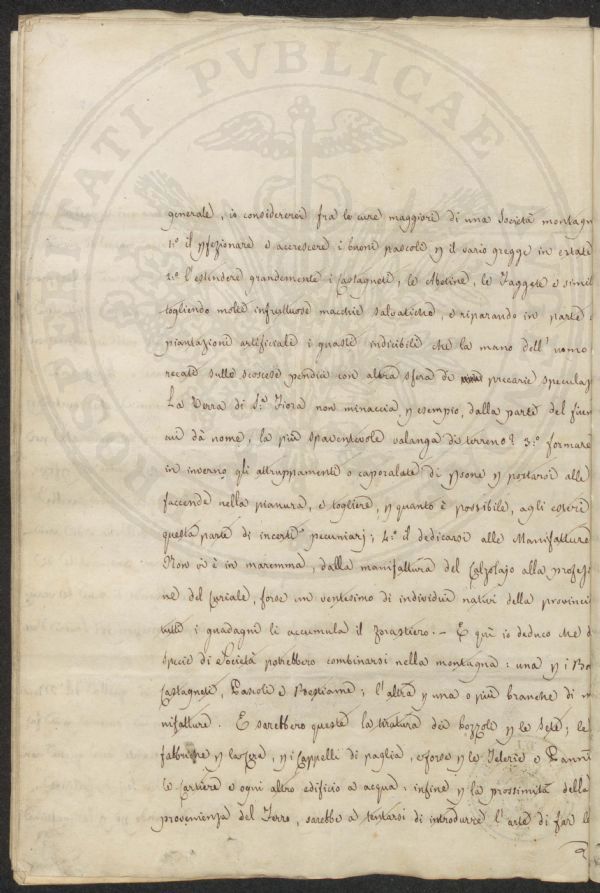 PROSPERITATI PVBLICAE
generale, io considererei fra le cure maggiori di una Società montagn
1.° il pfezionare e accrescere i buoni pascoli p il vario gregge in estate
2.° l'estendere grandemente i Castagneti, le Abetine, le Faggete e simil
togliendo molte infruttuose macchie salvatiche, e riparando in parte
piantazione artificiale i guasti indicibili che la mano dell'uomo
recati sulle scoscese pendici con altra sfera di precarie speculaz
La Terra di S.a Fiora non minaccia p esempio, dalla parte del fium
cui dà nome, la più spaventevole valanga di terreno? 3.° formare
in inverno gli attruppamenti o caporalate di psone p portarsi alle
faccende nella pianura, e togliere, p quanto è possibile, agli esteri
questa parte di incerti pecuniarj; 4.° il dedicarsi alle Manifatture
Non vi è in maremma, dalla manifattura del Calzolajo alla profess
ne del Curiale, forse un ventesimo di individui nativi della provinci
tutti i guadagni li accumula il forastiero. - E quì io deduco che d
specie di Società potrebbero combinarsi nella montagna: una p i Bo
Castagneti, Pascoli e Bestiame; l'altra p una o più branche di m
nifatture. E sarebbero queste la tiratura dei bozzoli p le Sete; le
fabbriche p la Cera, p i Cappelli di paglia, e forse p le Telerie e Panni
le Cartiere e ogni altro edificio a acqua: infine p la prossimità della
provenienza del Ferro, sarebbe a tentarsi di introdurre l'arte di far le